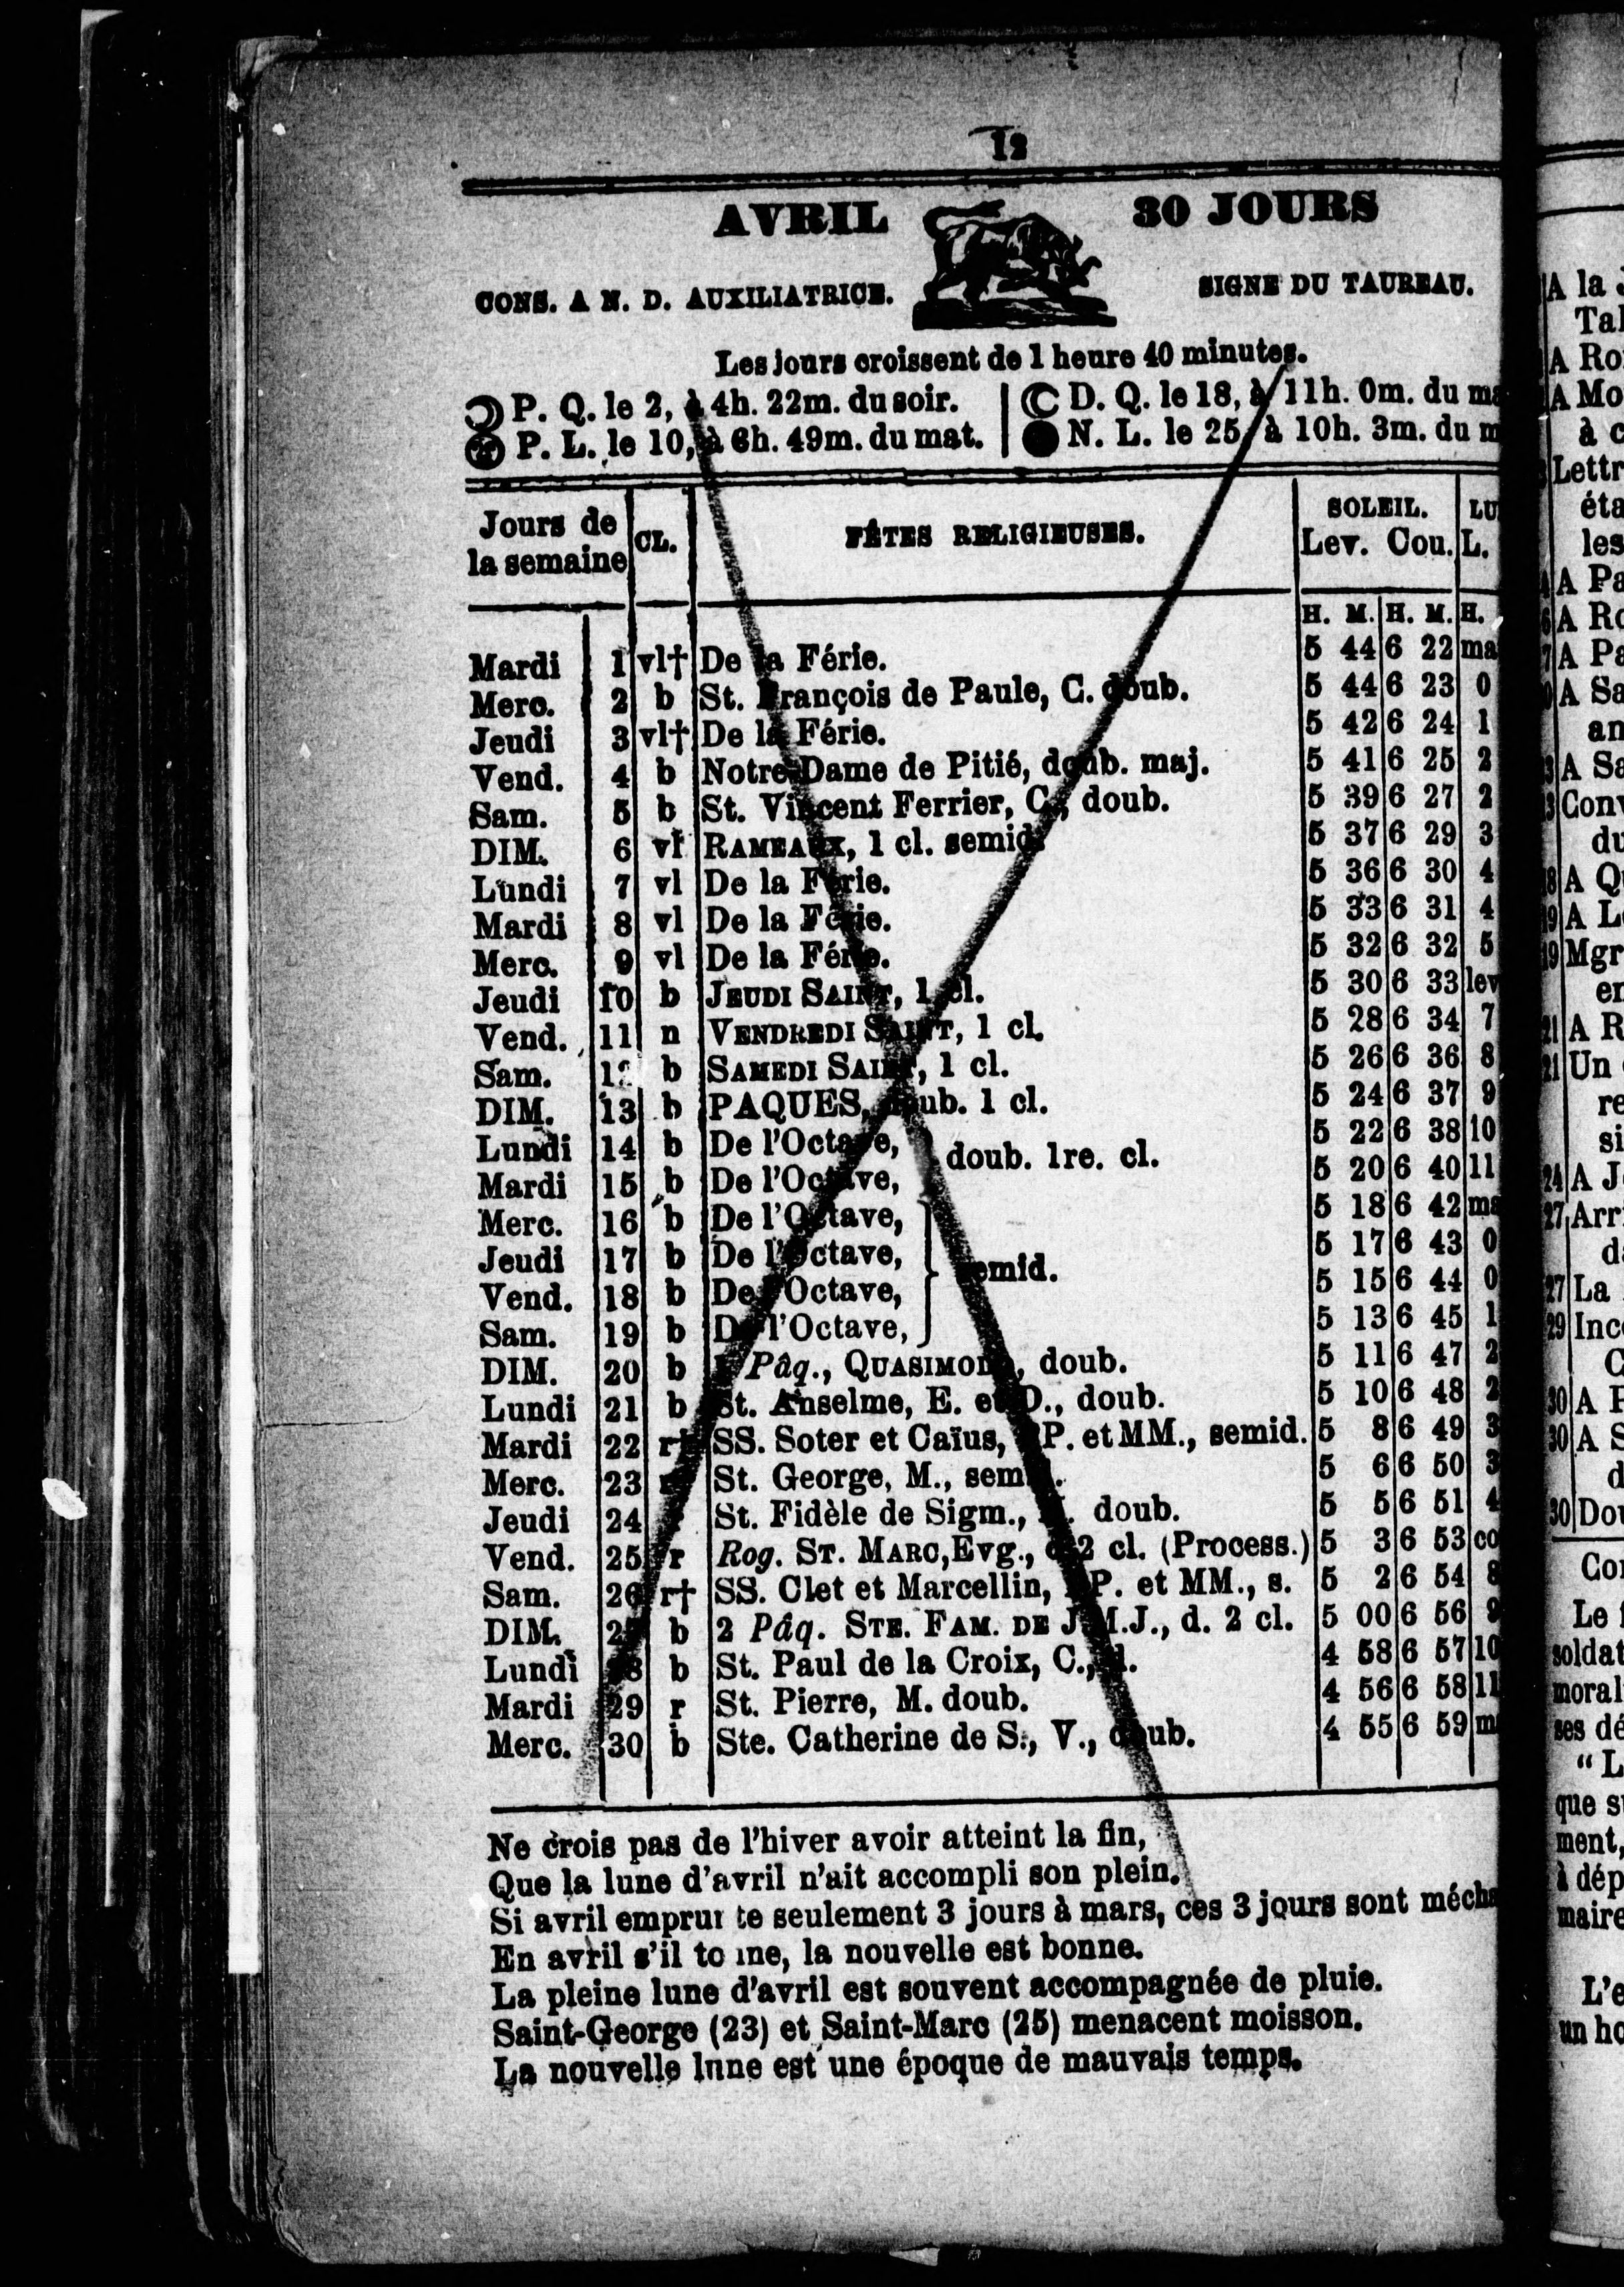 12
AVRIL 30 JOURS
CONS. A N. D. AUXILIATRICE. SIGNE DU TAUREAU.
Les jours croissent de 1 heure 40 minutes.
P. Q. le 2, à 4h. 22m. du soir. D. Q. le 18, à 11h. 0m. du
P. L. le 10, à 6h. 49m. du mat. N. L. le 25, à 10h. 3m. du
Jours de la semaine CL. FÊTES RELIGIEUSES. SOLEIL. Lev. Cou. L.
H. M. H. M. H.
Mardi 1 vl† De la Férie. 5 44 6 22
Merc. 2 b St. François de Paule, C. doub. 5 44 6 23 0
Jeudi 3 vl† De la Férie. 5 42 6 24 1
Vend. 4 b Notre-Dame de Pitié, doub. maj. 5 41 6 25 2
Sam. 5 b St. Vincent Ferrier, C., doub. 5 39 6 27 2
DIM. 6 vl RAMEAUX, 1 cl. semid. 5 37 6 29 3
Lundi 7 vl De la Férie. 5 36 6 30 4
Mardi 8 vl De la Férie. 5 33 6 31 4
Merc. 9 vl De la Férie. 5 32 6 32 5
Jeudi 10 b JEUDI SAINT, 1 cl. 5 30 6 33 lev
Vend. 11 n VENDREDI SAINT, 1 cl. 5 28 6 34 7
Sam. 12 b SAMEDI SAINT, 1 cl. 5 26 6 36 8
DIM. 13 b PAQUES, doub. 1 cl. 5 24 6 37 9
Lundi 14 b De l'Octave, doub. 1re. cl. 5 22 6 38 10
Mardi 15 b De l'Octave, 5 20 6 40 11
Merc. 16 b De l'Octave, 5 18 6 42
Jeudi 17 b De l'Octave, semid. 5 17 6 43 0
Vend. 18 b De l'Octave, 5 15 6 44 0
Sam. 19 b De l'Octave, 5 13 6 45 1
DIM. 20 b Pâq., QUASIMODO, doub. 5 11 6 47 2
Lundi 21 b St. Anselme, E. et D., doub. 5 10 6 48 2
Mardi 22 r† SS. Soter et Caïus, PP. et MM., semid. 5 8 6 49 3
Merc. 23 St. George, M., semid. 5 6 6 50 3
Jeudi 24 St. Fidèle de Sigm., doub. 5 5 6 51 4
Vend. 25 r Rog. ST. MARC, Evg., d. 2 cl. (Process.) 5 3 6 53 co
Sam. 26 r† SS. Clet et Marcellin, PP. et MM., s. 5 2 6 54 8
DIM. 27 b 2 Pâq. STE. FAM. DE J.M.J., d. 2 cl. 5 00 6 56 9
Lundi 28 b St. Paul de la Croix, C., d. 4 58 6 57 10
Mardi 29 r St. Pierre, M. doub. 4 56 6 58 11
Merc. 30 b Ste. Catherine de S., V., doub. 4 55 6 59
Ne crois pas de l'hiver avoir atteint la fin,
Que la lune d'avril n'ait accompli son plein.
Si avril emprunte seulement 3 jours à mars, ces 3 jours sont
En avril s'il tonne, la nouvelle est bonne.
La pleine lune d'avril est souvent accompagnée de pluie.
Saint-George (23) et Saint-Marc (25) menacent moisson.
La nouvelle lune est une époque de mauvais temps.